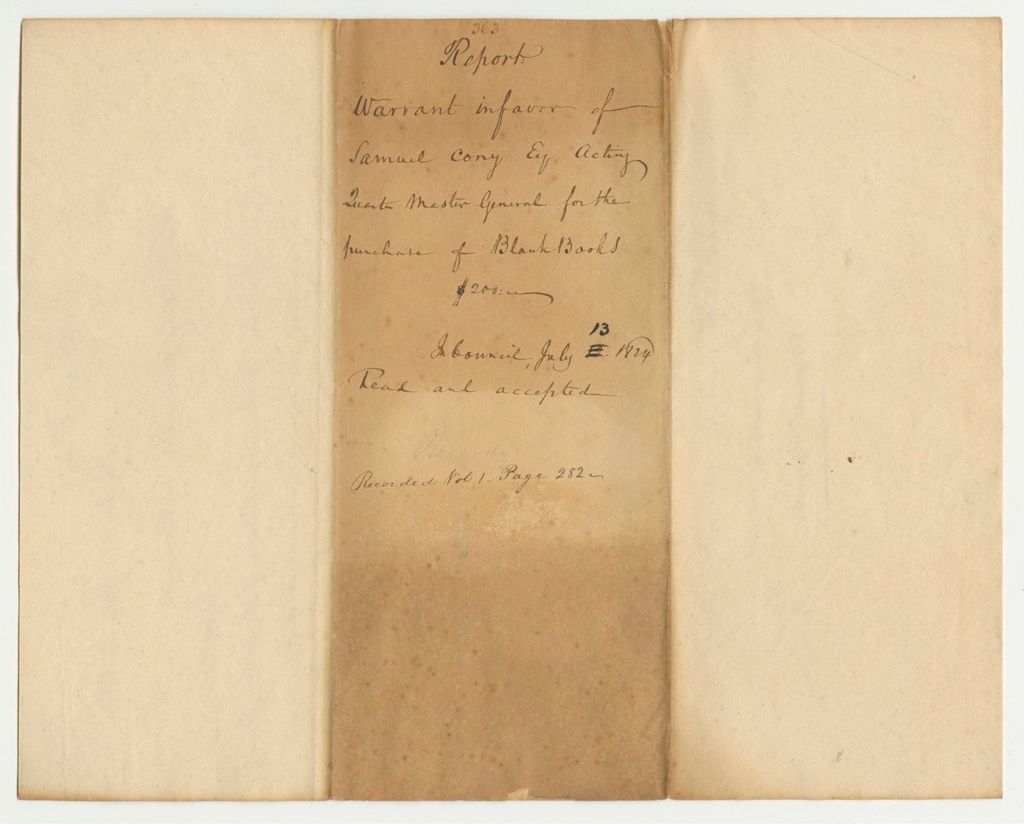 363
Report.
Warrant in favor of
Samuel Cony Esq Acting
Quarter Master General for the
purchase of Blank Books
$200:—
In Council, July 13 1824
Read and accepted
Recorded Vol 1 - Page 282